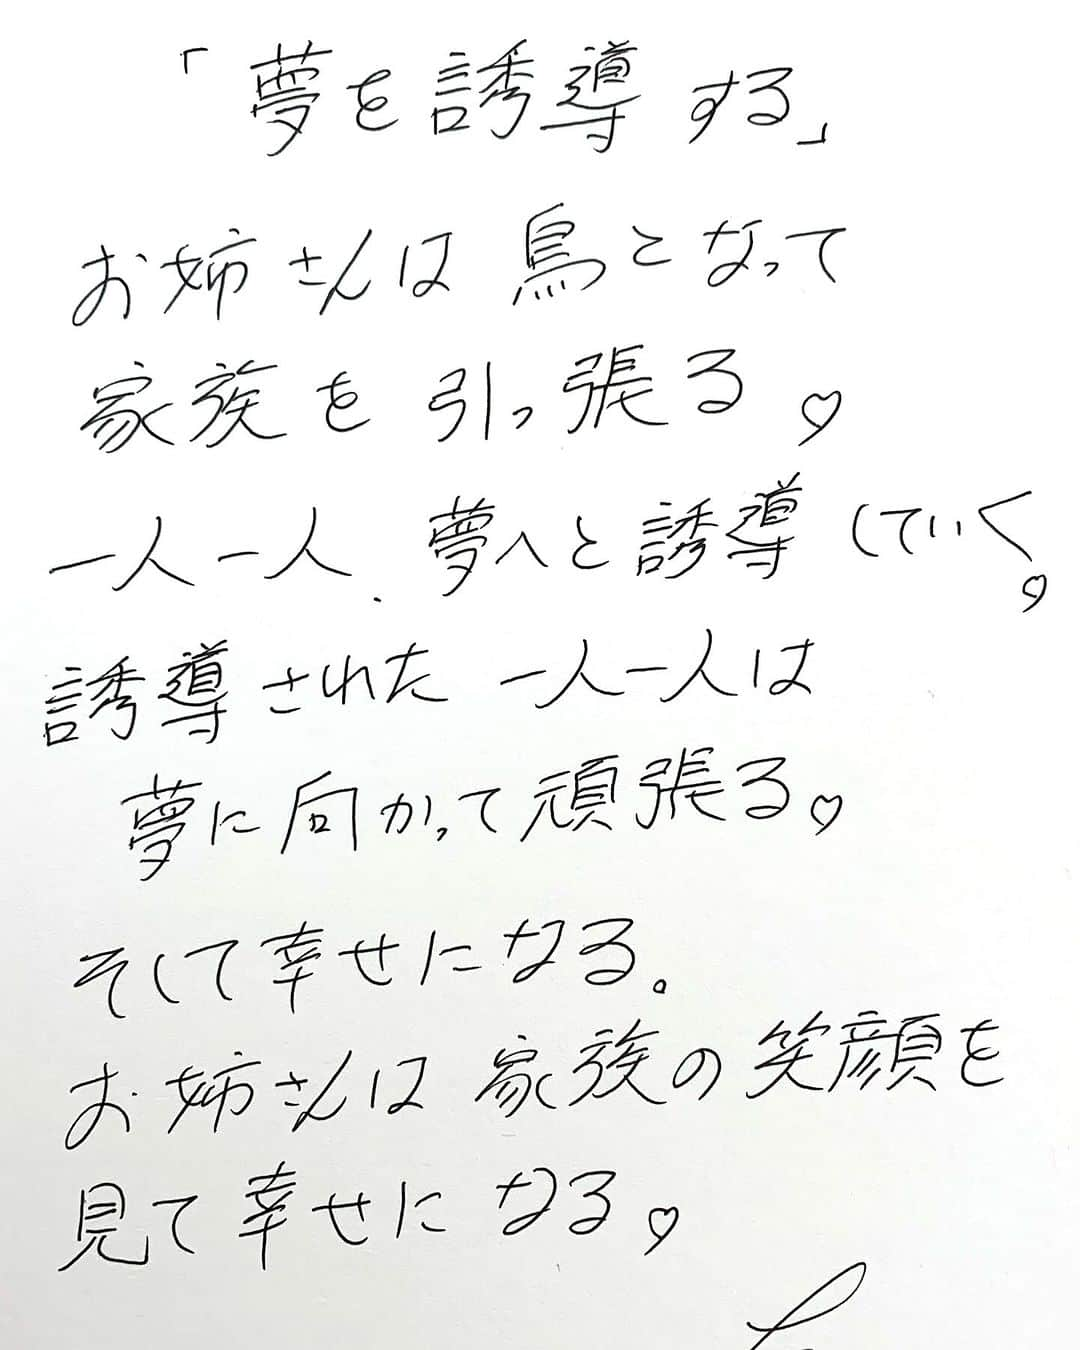 「夢を誘導する」
お姉さんは鳥となって
家族を引っ張る♡
一人一人、夢へと誘導していく♡
誘導された一人一人は
夢に向かって頑張る♡
そして幸せになる。
お姉さんは家族の笑顔を
見て幸せになる♡